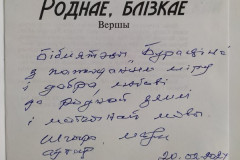 РОДНАЕ, БЛІЗКАЕ
Вершы
Бібліятэцы Бурацінa
з пажаданнем міру
і дабра, любві
да роднай зямлі
і матчынай мовы.
Аўтар
20.02.2024